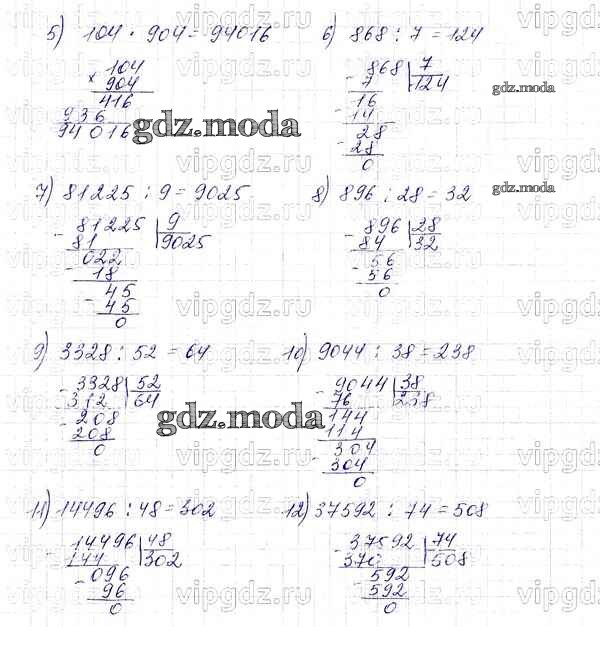 5) 104 · 904 = 94016
6) 868 : 7 = 124
× 104
904
416
936
94016
- 868 | 7
7 124
- 16
14
- 28
28
0
gdz.moda
gdz.moda
7) 81225 : 9 = 9025
8) 896 : 28 = 32
gdz.moda
- 81225 | 9
81 9025
- 022
18
- 45
45
0
- 896 | 28
84 32
- 56
56
0
9) 3328 : 52 = 64
10) 9044 : 38 = 238
- 3328 | 52
312 64
- 208
208
0
- 9044 | 38
76 238
- 144
114
- 304
304
0
gdz.moda
gdz.moda
11) 14496 : 48 = 302
12) 37592 : 74 = 508
- 14496 | 48
144 302
- 096
96
0
- 37592 | 74
370 508
- 592
592
0
vipgdz.ru